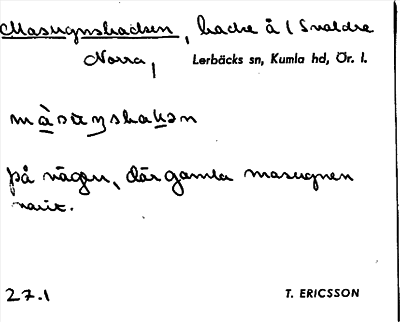 Masugnsbacken, backe å (Snaldre
Norra, Lerbäcks sn, Kumla hd, Ör. l.
på vägen, där gamla masugnen
varit.
27.1 T. ERICSSON